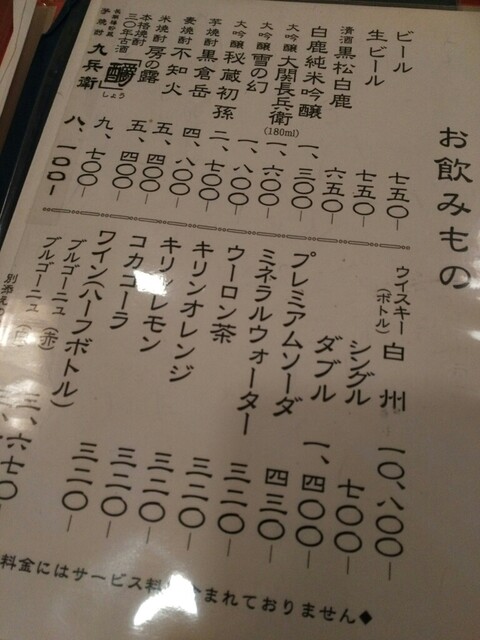 お飲みもの
ビール 七五〇―
生ビール 七五〇―
清酒 黒松白鹿 六五〇―
白鹿純米吟醸 一、三〇〇―
大吟醸 大関長兵衛 (180ml) 一、六〇〇―
大吟醸 雪の幻 一、八〇〇―
大吟醸 秘蔵初孫 二、一〇〇―
芋焼酎 黒倉岳 四、八〇〇―
麦焼酎 不知火 五、四〇〇―
米焼酎 房の露 五、四〇〇―
本格焼酎 三〇年古酒 「醸」しょう 九、七〇〇―
芋焼酎 九兵衛 八、一〇〇―
ウイスキー (ボトル) 白州 一〇、八〇〇―
シングル 七〇〇―
ダブル 一、四〇〇―
プレミアムソーダ 四三〇―
ミネラルウォーター 三二〇―
ウーロン茶 三二〇―
キリンオレンジ 三二〇―
キリンレモン 三二〇―
コカコーラ 三二〇―
ワイン(ハーフボトル)
ブルゴーニュ (赤) 三、六七〇―
ブルゴーニュ
料金にはサービス料 まれておりません◆